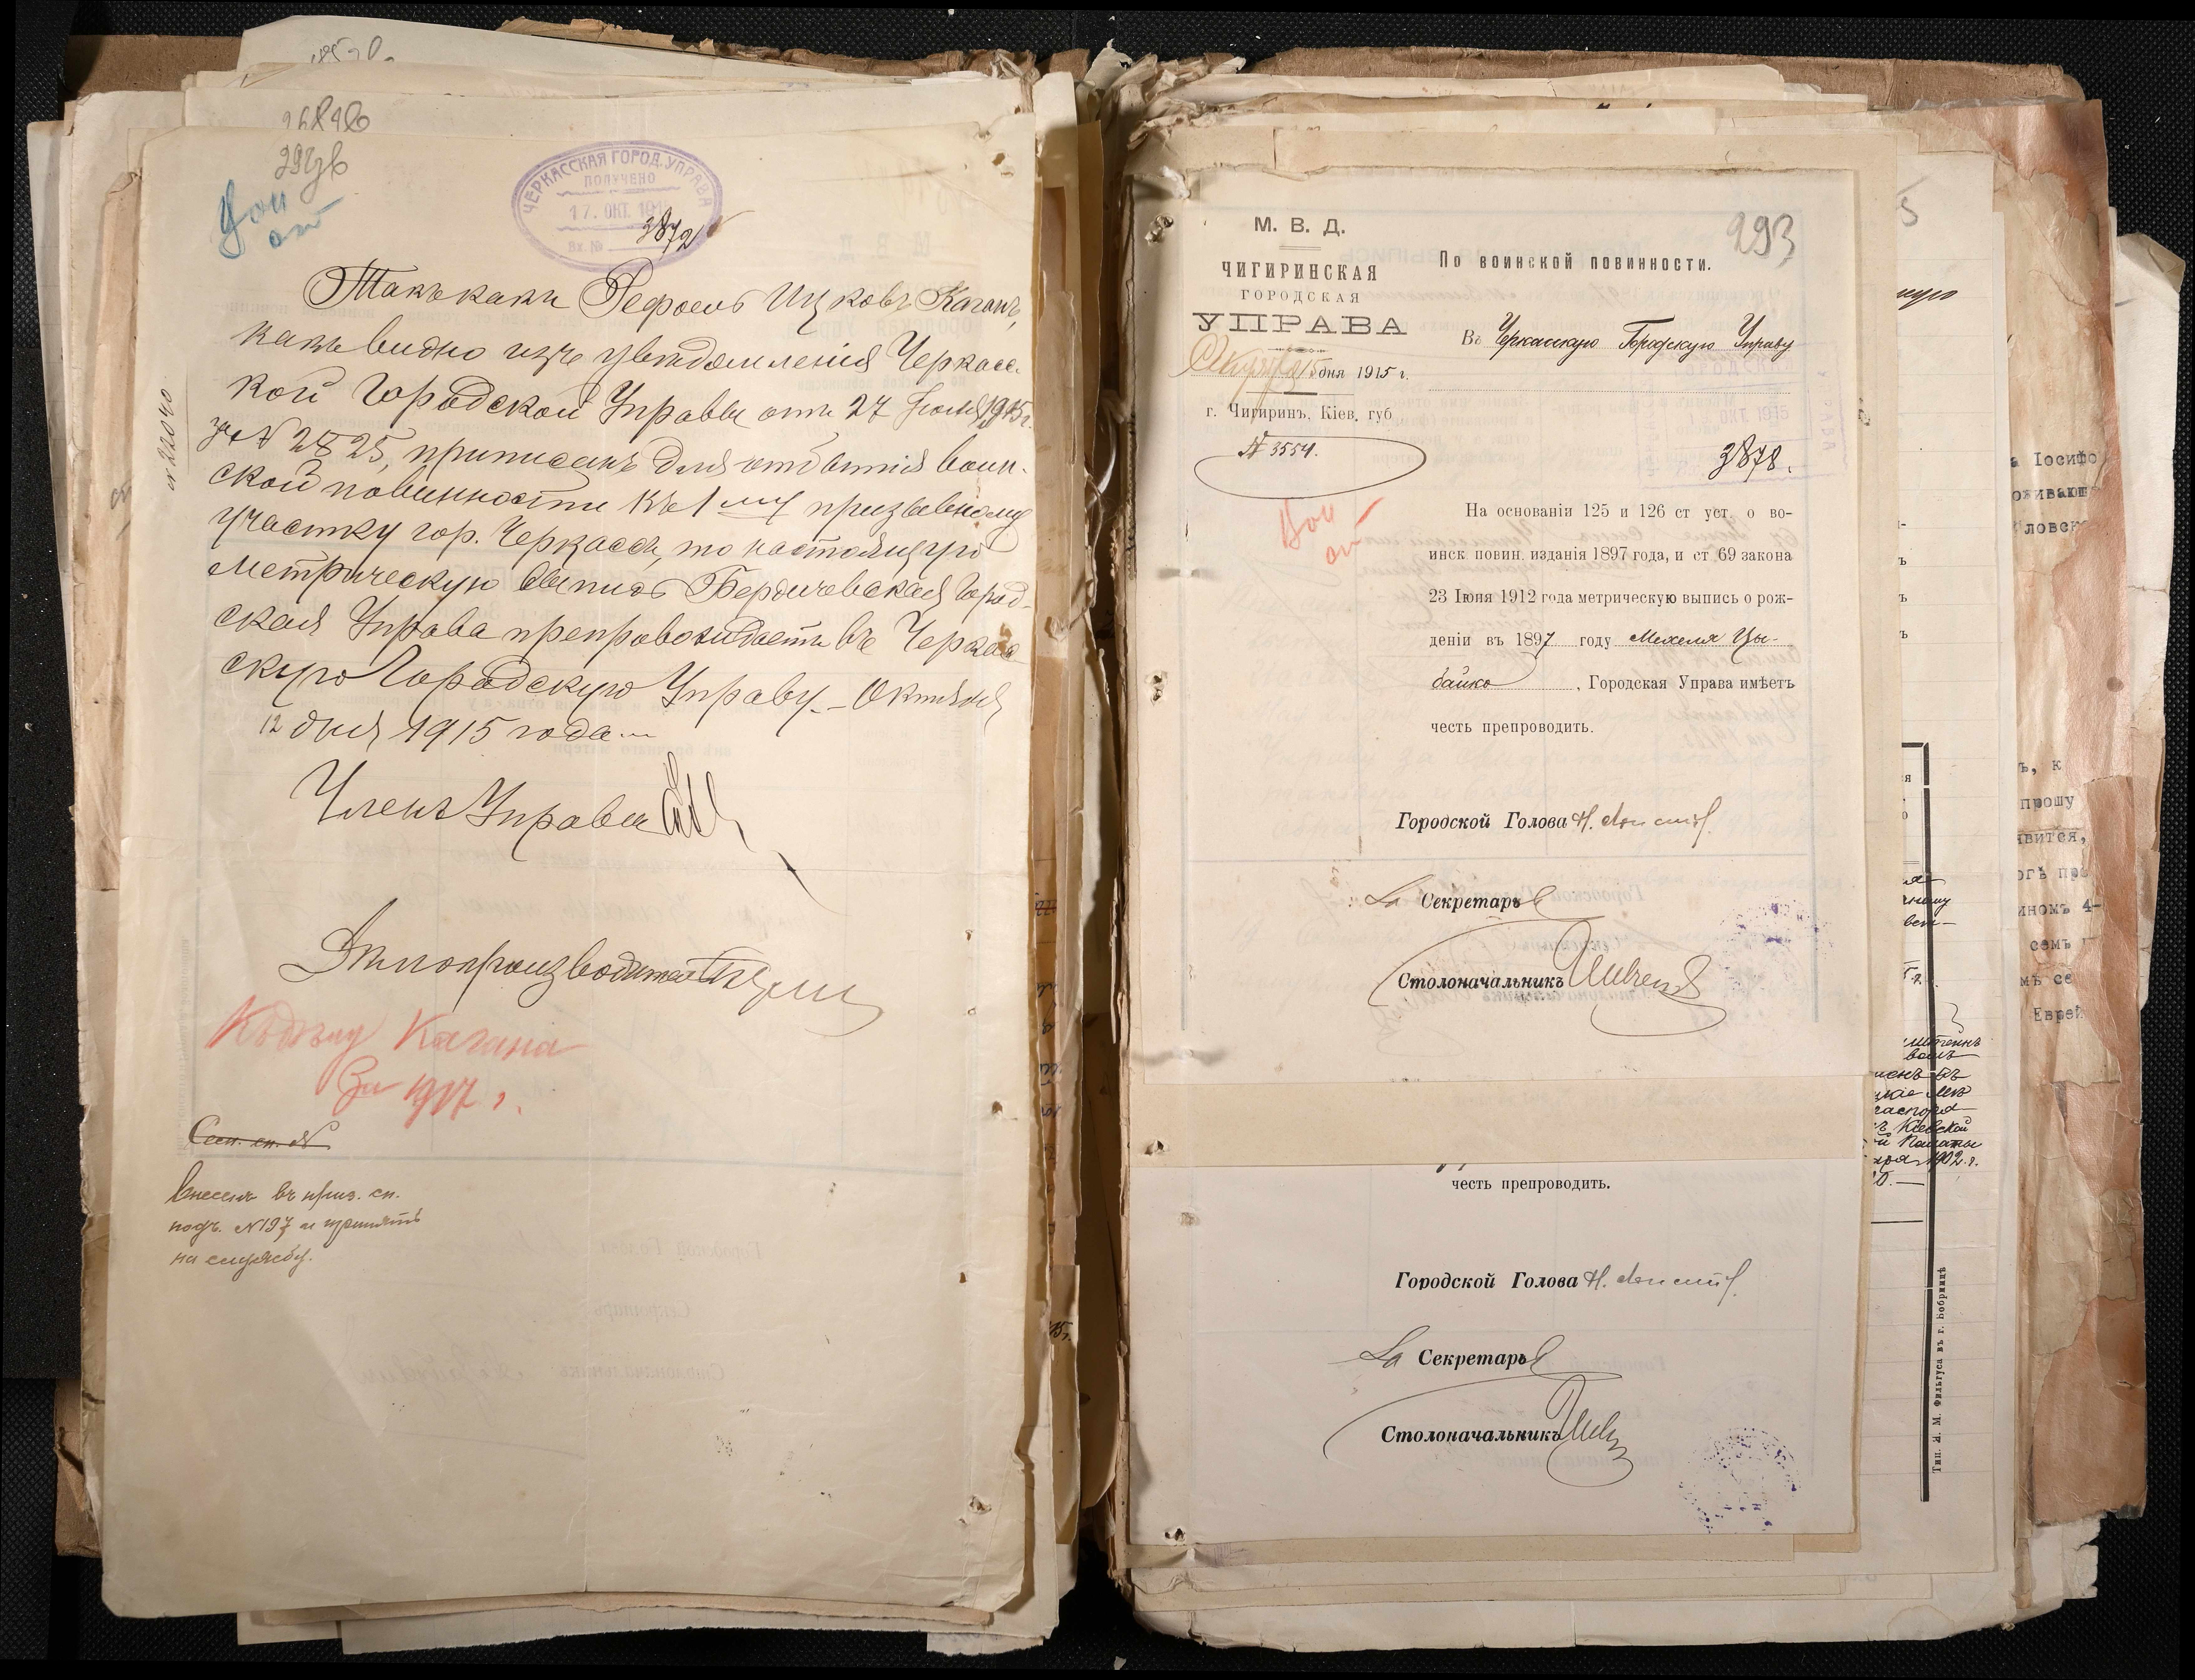 292 зв
ЧЕРКАССКАЯ ГОРОД. УПРАВА
ПОЛУЧЕНО
17. ОКТ. 1915
Вх. №
3872
№ 22040
Такъ какъ Рефоель Ицковъ Каганъ,
какъ видно изъ увѣдомленія Черкасс-
кой Городской Управы отъ 27 Іюля 1915 г.
за № 2825, приписанъ для отбытія воин-
ской повинности къ 1му призывному
участку гор. Черкассъ, то настоящую
метрическую выпись Бердичевская Город-
ская Управа препровождаетъ въ Черкас-
скую Городскую Управу. – Октября
12 дня 1915 года
Членъ Управы
Дѣлопроизводитель
Къ дѣлу Кагана
За 1917 г.
внесенъ въ приз. сп.
подъ № 197 и принятъ
на службу.
293
М. В. Д.
ЧИГИРИНСКАЯ
ГОРОДСКАЯ
УПРАВА
Октября 15 дня 1915 г.
г. Чигиринъ, Кіев. губ
№ 3554.
По воинской повинности.
Въ Черкасскую Городскую Управу
3878.
На основаніи 125 и 126 ст уст. о во-
инск повин. изданія 1897 года, и ст 69 закона
23 Іюня 1912 года метрическую выпись о рож-
деніи въ 1897 году Мехеля Цы-
байко, Городская Управа имѣетъ
честь препроводить.
Городской Голова
За Секретаря
Столоначальникъ
честь препроводить.
Городской Голова
За Секретаря
Столоначальникъ
Іосифо
ловск
ъ, к
прошу
явится,
огъ пр
4-
семь
мъ се
Еврей
Кіевской
1902 г.
Тип. Я. М. Фильгуса въ г. Бобринцѣ